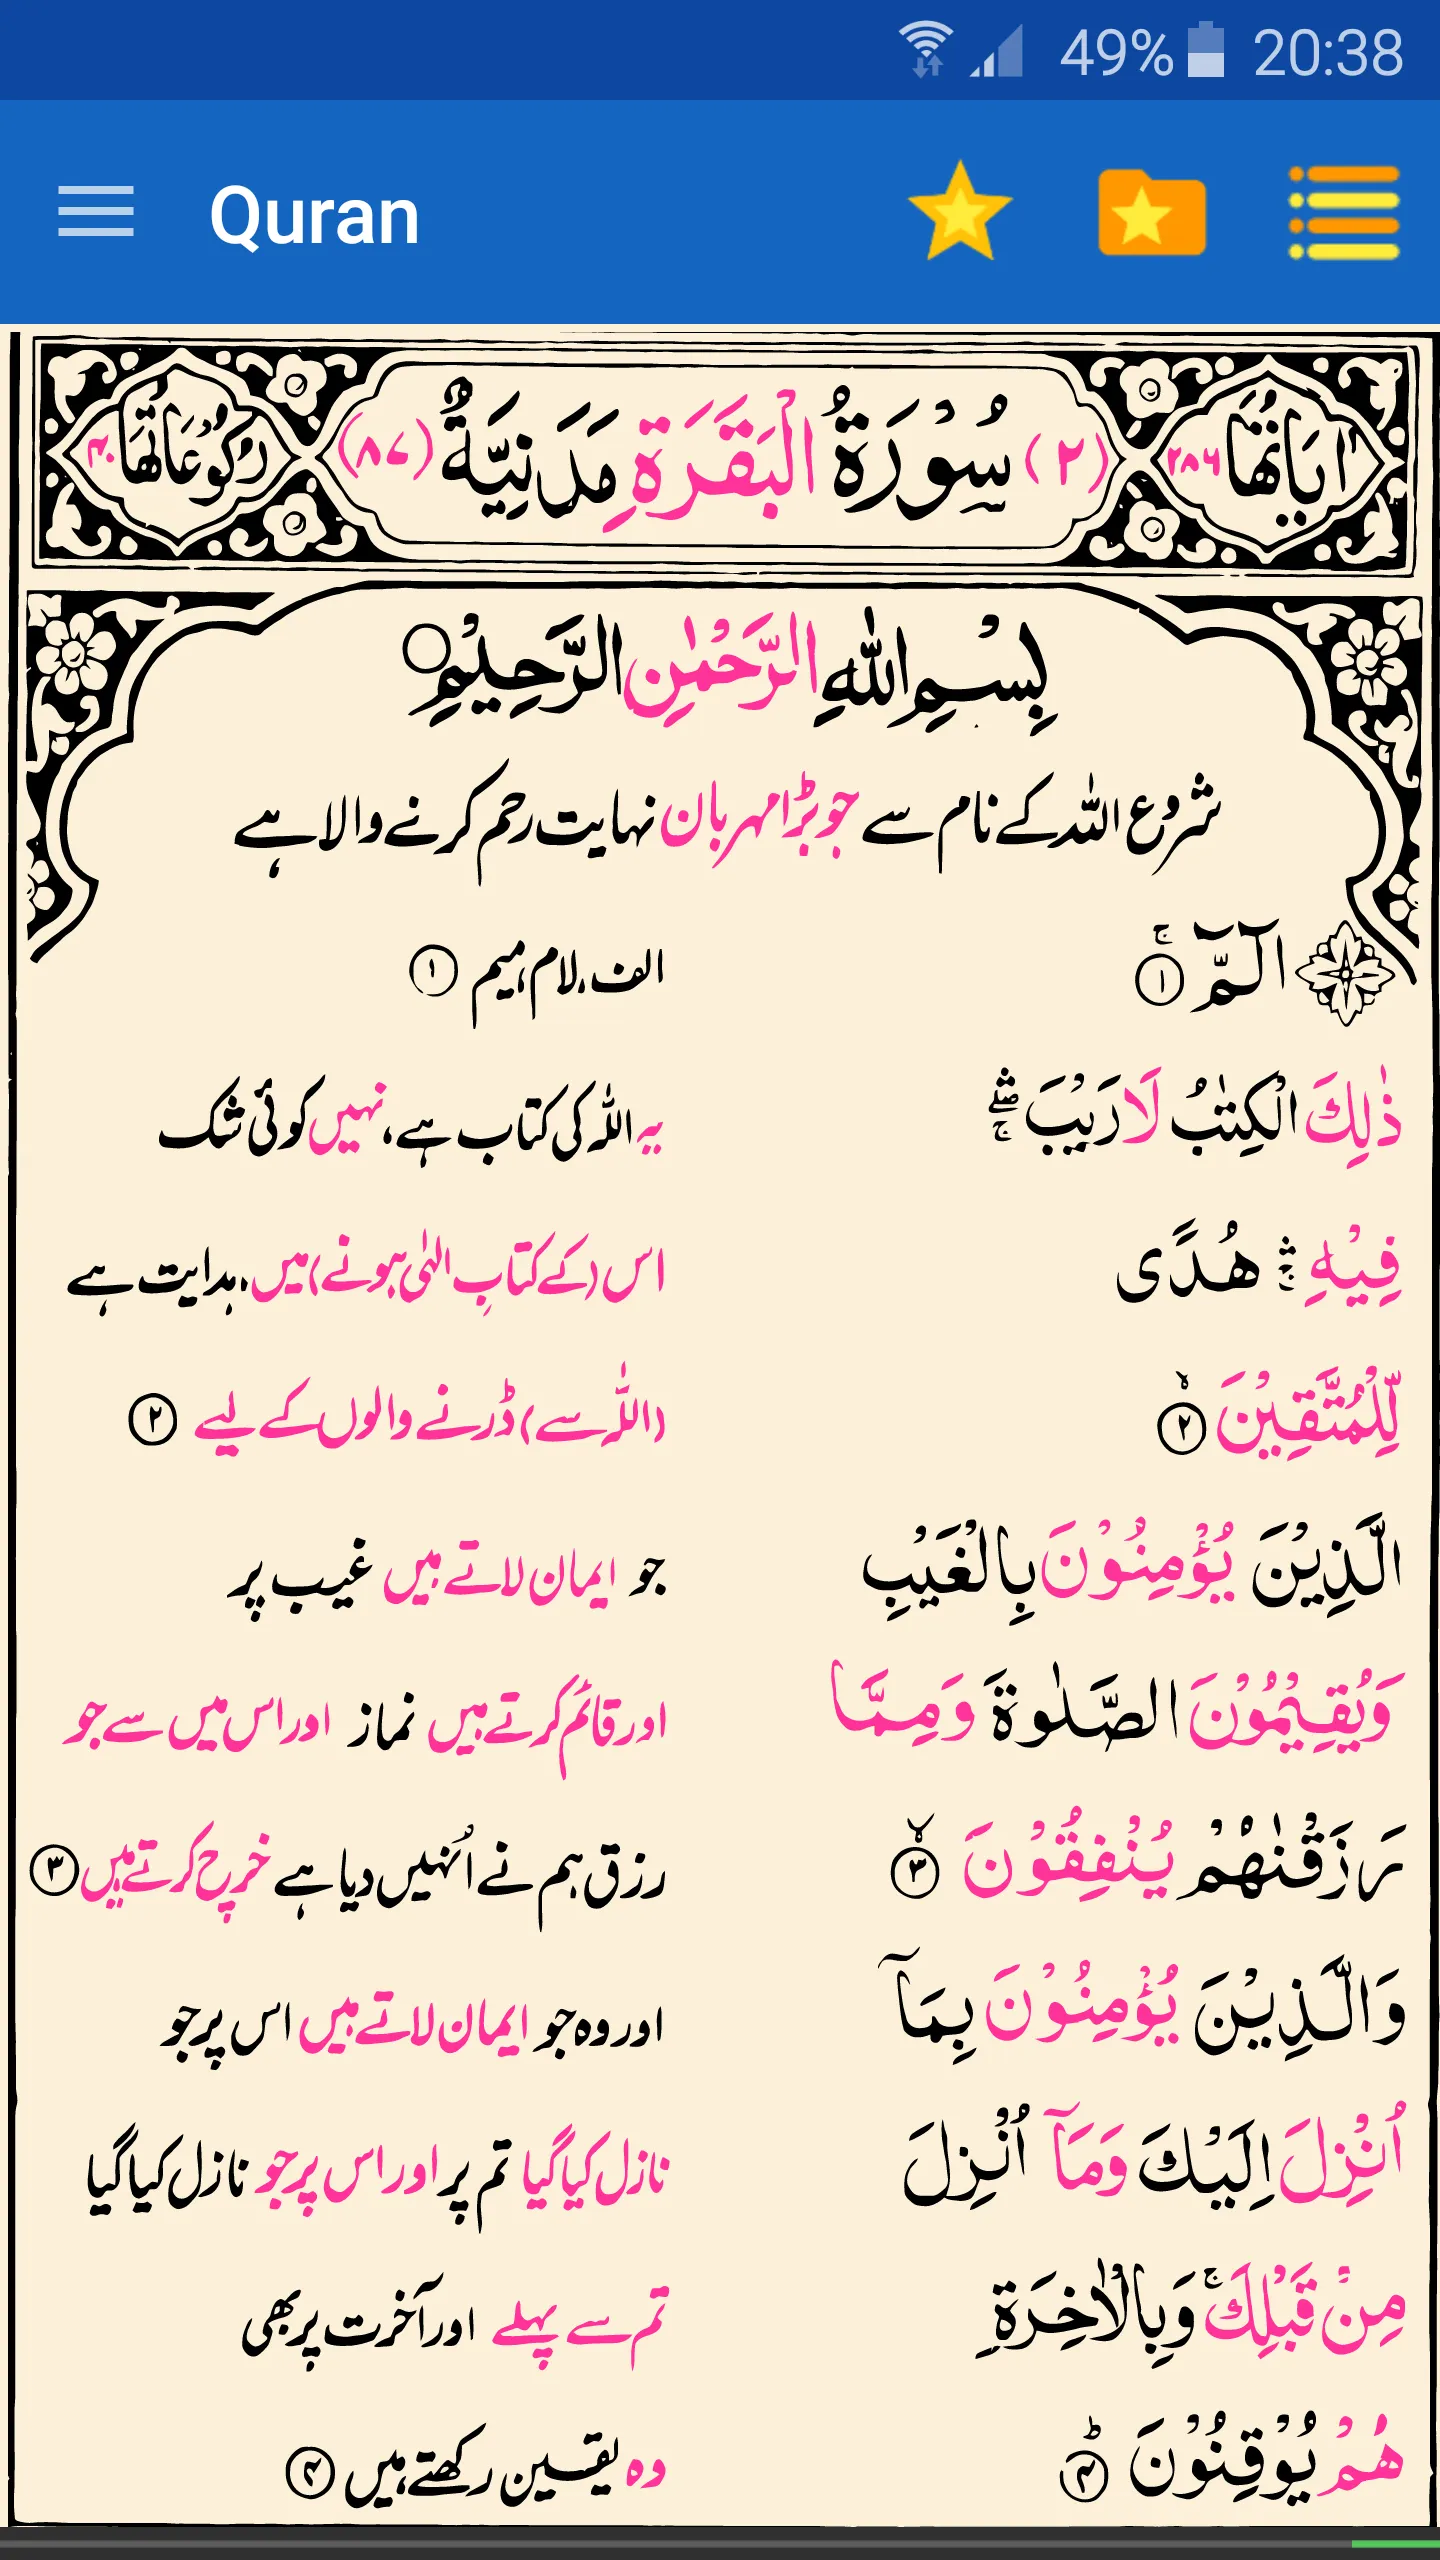 49% 20:38
Quran
اٰيَاتُهَا ٢٨٦ (٢) سُوْرَةُ الْبَقَرَةِ مَدَنِيَّةٌ (٨٧) رُكُوْعَاتُهَا ٤٠
بِسْمِ اللّٰهِ الرَّحْمٰنِ الرَّحِيْمِ
شروع اللہ کے نام سے جو بڑا مہربان نہایت رحم کرنے والا ہے
الٓمّٓ ۚ ١ الف، لام، میم ١
ذٰلِكَ الْكِتٰبُ لَا رَيْبَ ۛۖۚ یہ اللہ کی کتاب ہے، نہیں کوئی شک
فِيْهِ ۛۚ هُدًى اس (کے کتابِ الٰہی ہونے) میں، ہدایت ہے
لِّلْمُتَّقِيْنَ ۙ ٢ (اللہ سے) ڈرنے والوں کے لیے ٢
الَّذِيْنَ يُؤْمِنُوْنَ بِالْغَيْبِ جو ایمان لاتے ہیں غیب پر
وَيُقِيْمُوْنَ الصَّلٰوةَ وَمِمَّا اور قائم کرتے ہیں نماز اور اس میں سے جو
رَزَقْنٰهُمْ يُنْفِقُوْنَ ۙ ٣ رزق ہم نے اُنہیں دیا ہے خرچ کرتے ہیں ٣
وَالَّذِيْنَ يُؤْمِنُوْنَ بِمَآ اور وہ جو ایمان لاتے ہیں اس پر جو
اُنْزِلَ اِلَيْكَ وَمَآ اُنْزِلَ نازل کیا گیا تم پر اور اس پر جو نازل کیا گیا
مِنْ قَبْلِكَ ۚ وَبِالْاٰخِرَةِ تم سے پہلے اور آخرت پر بھی
هُمْ يُوْقِنُوْنَ ؕ ۴ وہ یقین رکھتے ہیں ۴